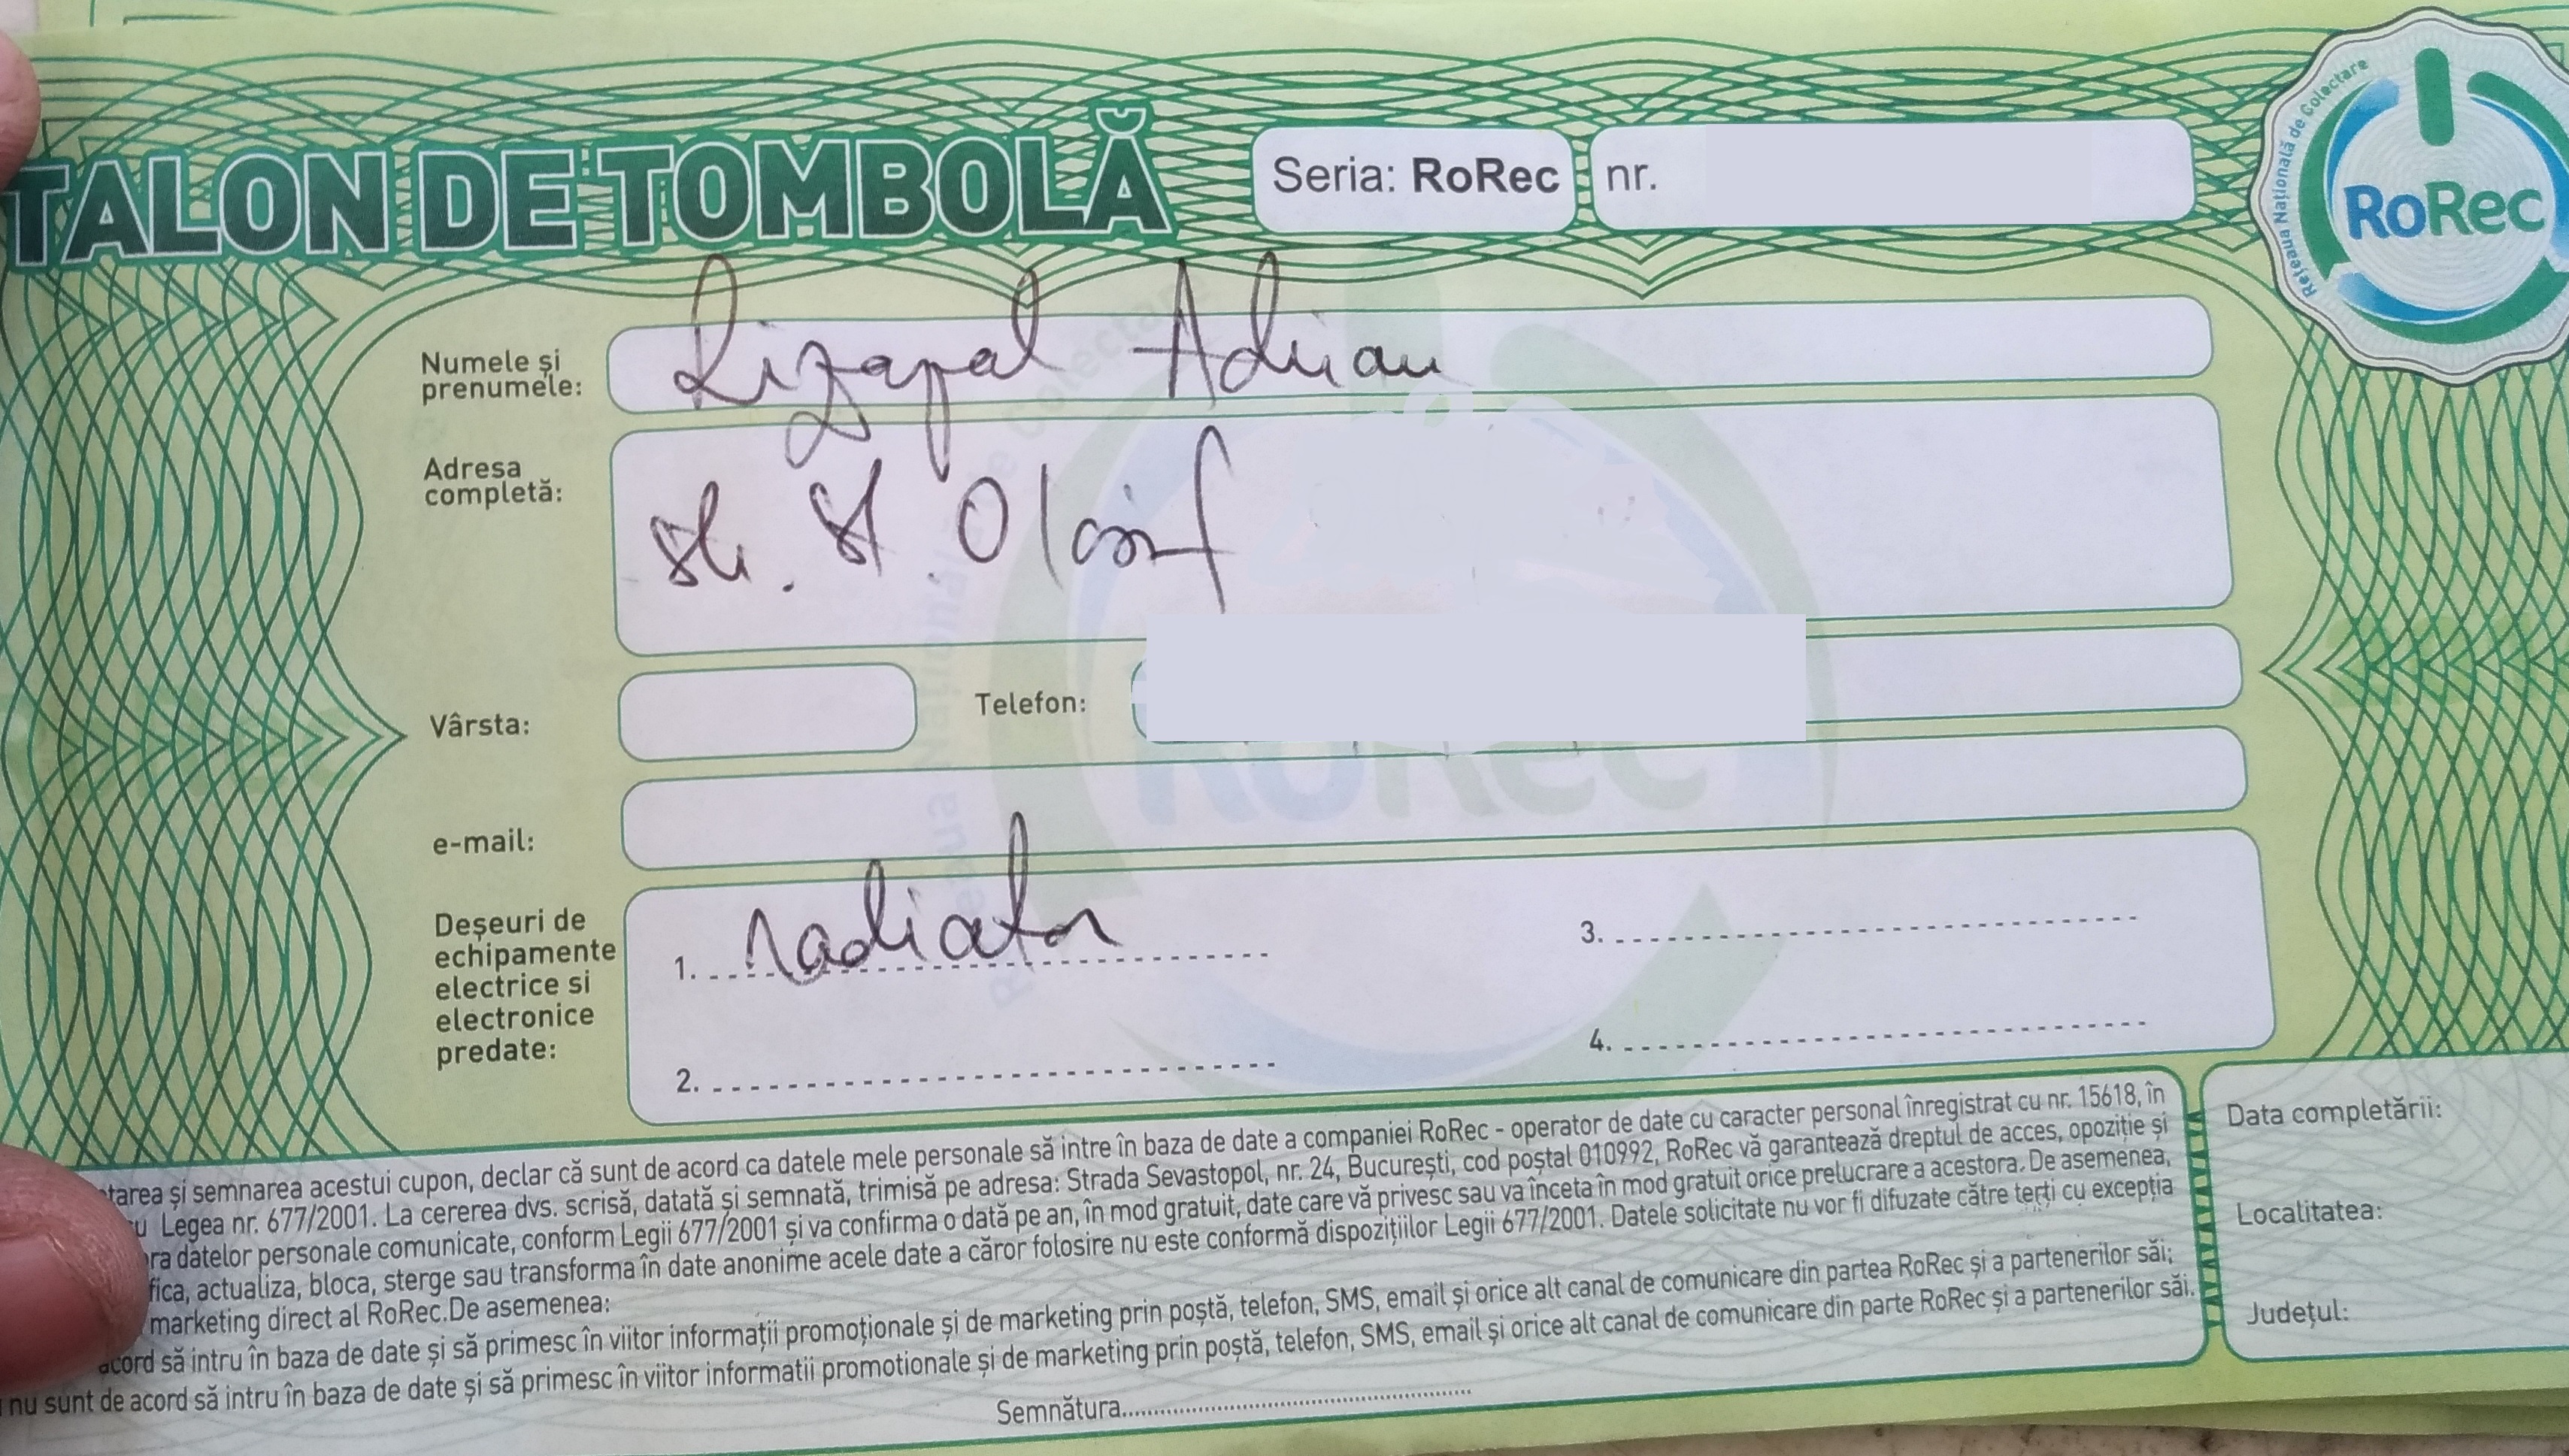 TALON DE TOMBOLĂ
Seria: RoRec nr.
Rețeaua Națională de Colectare
RoRec
Numele și prenumele: Rizapal Adrian
Adresa completă: str. St. O
Vârsta:
Telefon:
e-mail:
Deșeuri de
echipamente
electrice si
electronice
predate:
1. radiator
2.
3.
4.
tarea și semnarea acestui cupon, declar că sunt de acord ca datele mele personale să intre în baza de date a companiei RoRec - operator de date cu caracter personal înregistrat cu nr. 15618, în
Legea nr. 677/2001. La cererea dvs. scrisă, datată și semnată, trimisă pe adresa: Strada Sevastopol, nr. 24, București, cod poștal 010992, RoRec vă garantează dreptul de acces, opoziție și
ra datelor personale comunicate, conform Legii 677/2001 și va confirma o dată pe an, în mod gratuit, date care vă privesc sau va înceta în mod gratuit orice prelucrare a acestora. De asemenea,
fica, actualiza, bloca, sterge sau transforma în date anonime acele date a căror folosire nu este conformă dispozițiilor Legii 677/2001. Datele solicitate nu vor fi difuzate către terți cu excepția
marketing direct al RoRec.De asemenea:
acord să intru în baza de date și să primesc în viitor informații promoționale și de marketing prin poștă, telefon, SMS, email și orice alt canal de comunicare din partea RoRec și a partenerilor săi;
nu sunt de acord să intru în baza de date și să primesc în viitor informatii promotionale și de marketing prin poștă, telefon, SMS, email și orice alt canal de comunicare din parte RoRec și a partenerilor săi.
Semnătura
Data completării:
Localitatea:
Județul: